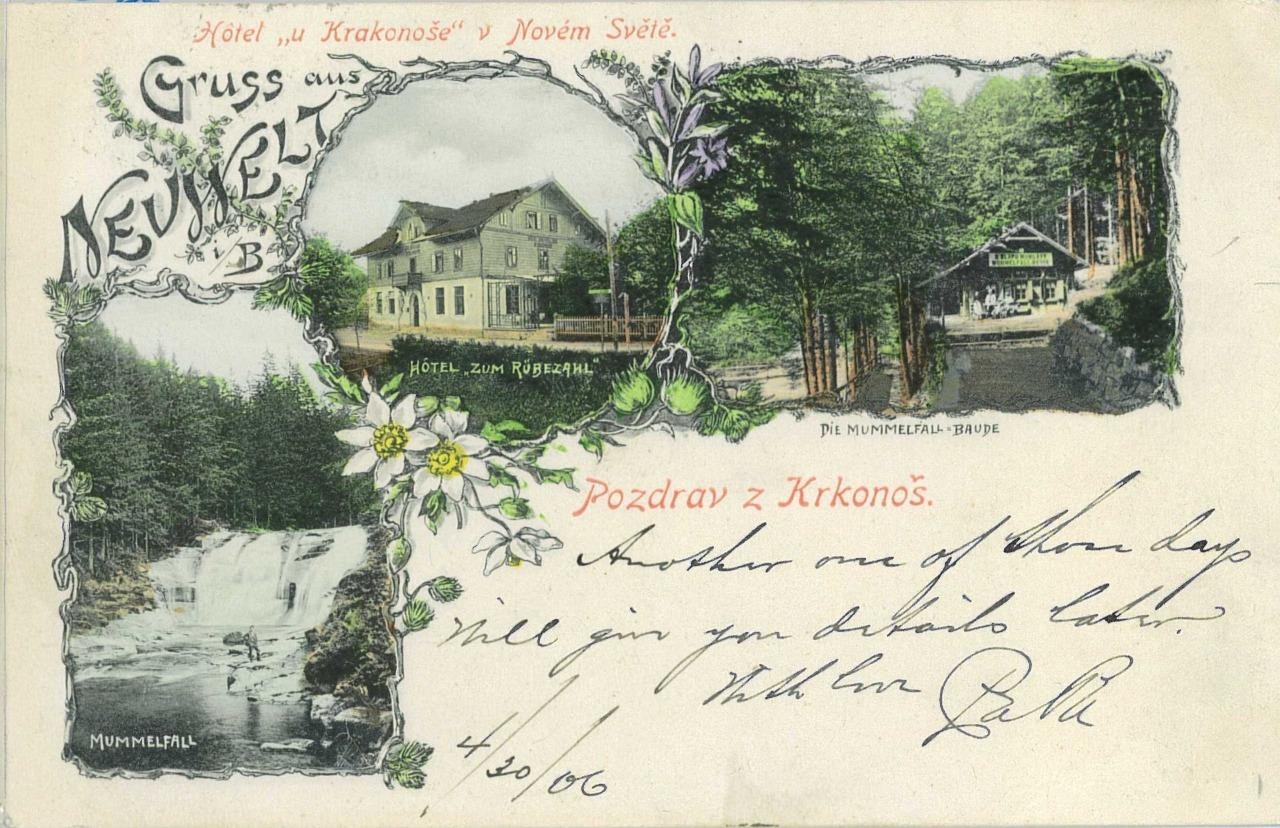 Hôtel „u Krakonoše“ v Novém Světě.
Gruss aus
NEUWELT
i/B
HÔTEL „ZUM RÜBEZAHL“
DIE MUMMELFALL=BAUDE
Pozdrav z Krkonoš.
Another one of those days
Will give you details later.
With love PaPa
4/30/06
MUMMELFALL